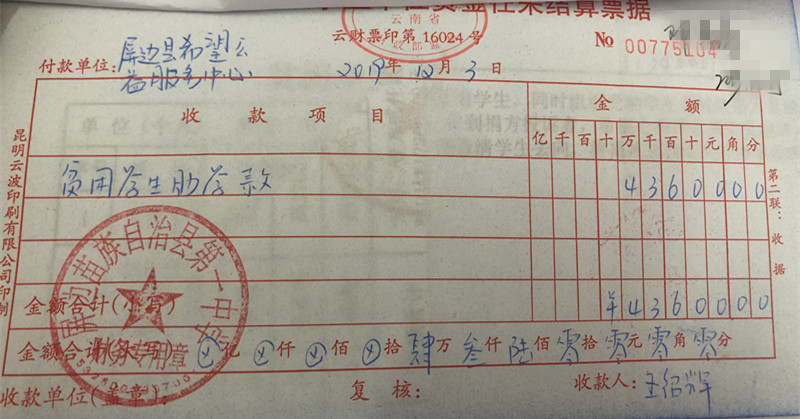 单位资金往来结算票据
云南省
财政部监
云财票印第 16024号
No 00775004
付款单位：屏边县希望公益服务中心
2019年12月3日
收款项目
金额
亿千百十万千百十元角分
贫困学生助学款
4360000
金额合计(小写)
¥4360000
金额合计(大写) ⊗亿⊗仟⊗佰⊗拾肆万叁仟陆佰零拾零元零角零分
收款单位(盖章)：
复核：
收款人：王绍辉
昆明云波印刷有限公司印制
第二联：收据
屏边苗族自治县第一中学
财务专用章